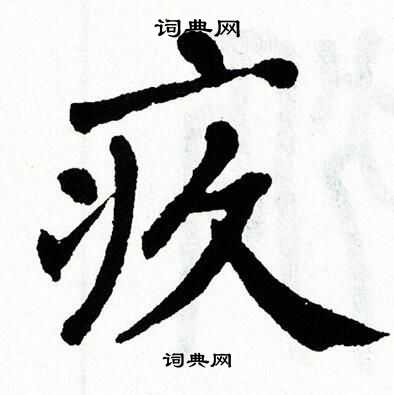 词典网
疚
词典网